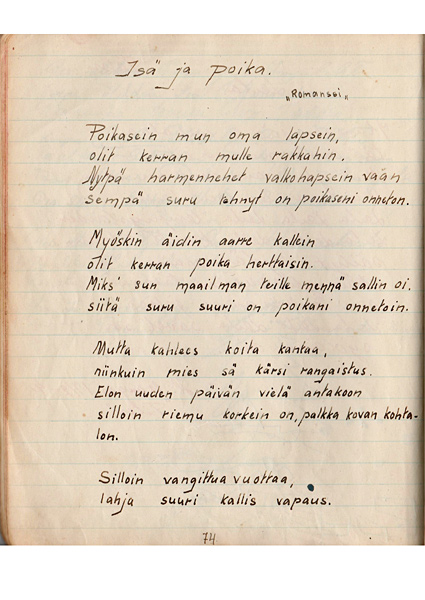 Isä ja poika.
"Romanssi"
Poikasein mun oma lapsein,
olit kerran mulle rakkahin.
Nytpä harmennehet valkohapsein vaan
sempä suru tehnyt on poikaseni onneton.
Myöskin äidin aarre kallein
olit kerran poika herttaisin.
Miks' sun maailman teille mennä sallin oi,
siitä suru suuri on poikani onnetoin.
Mutta kahlees koita kantaa,
niinkuin mies sä kärsi rangaistus.
Elon uuden päivän vielä antakoon
silloin riemu korkein on, palkka kovan kohta-
lon.
Silloin vangittua vuottaa,
lahja suuri kallis vapaus.
74